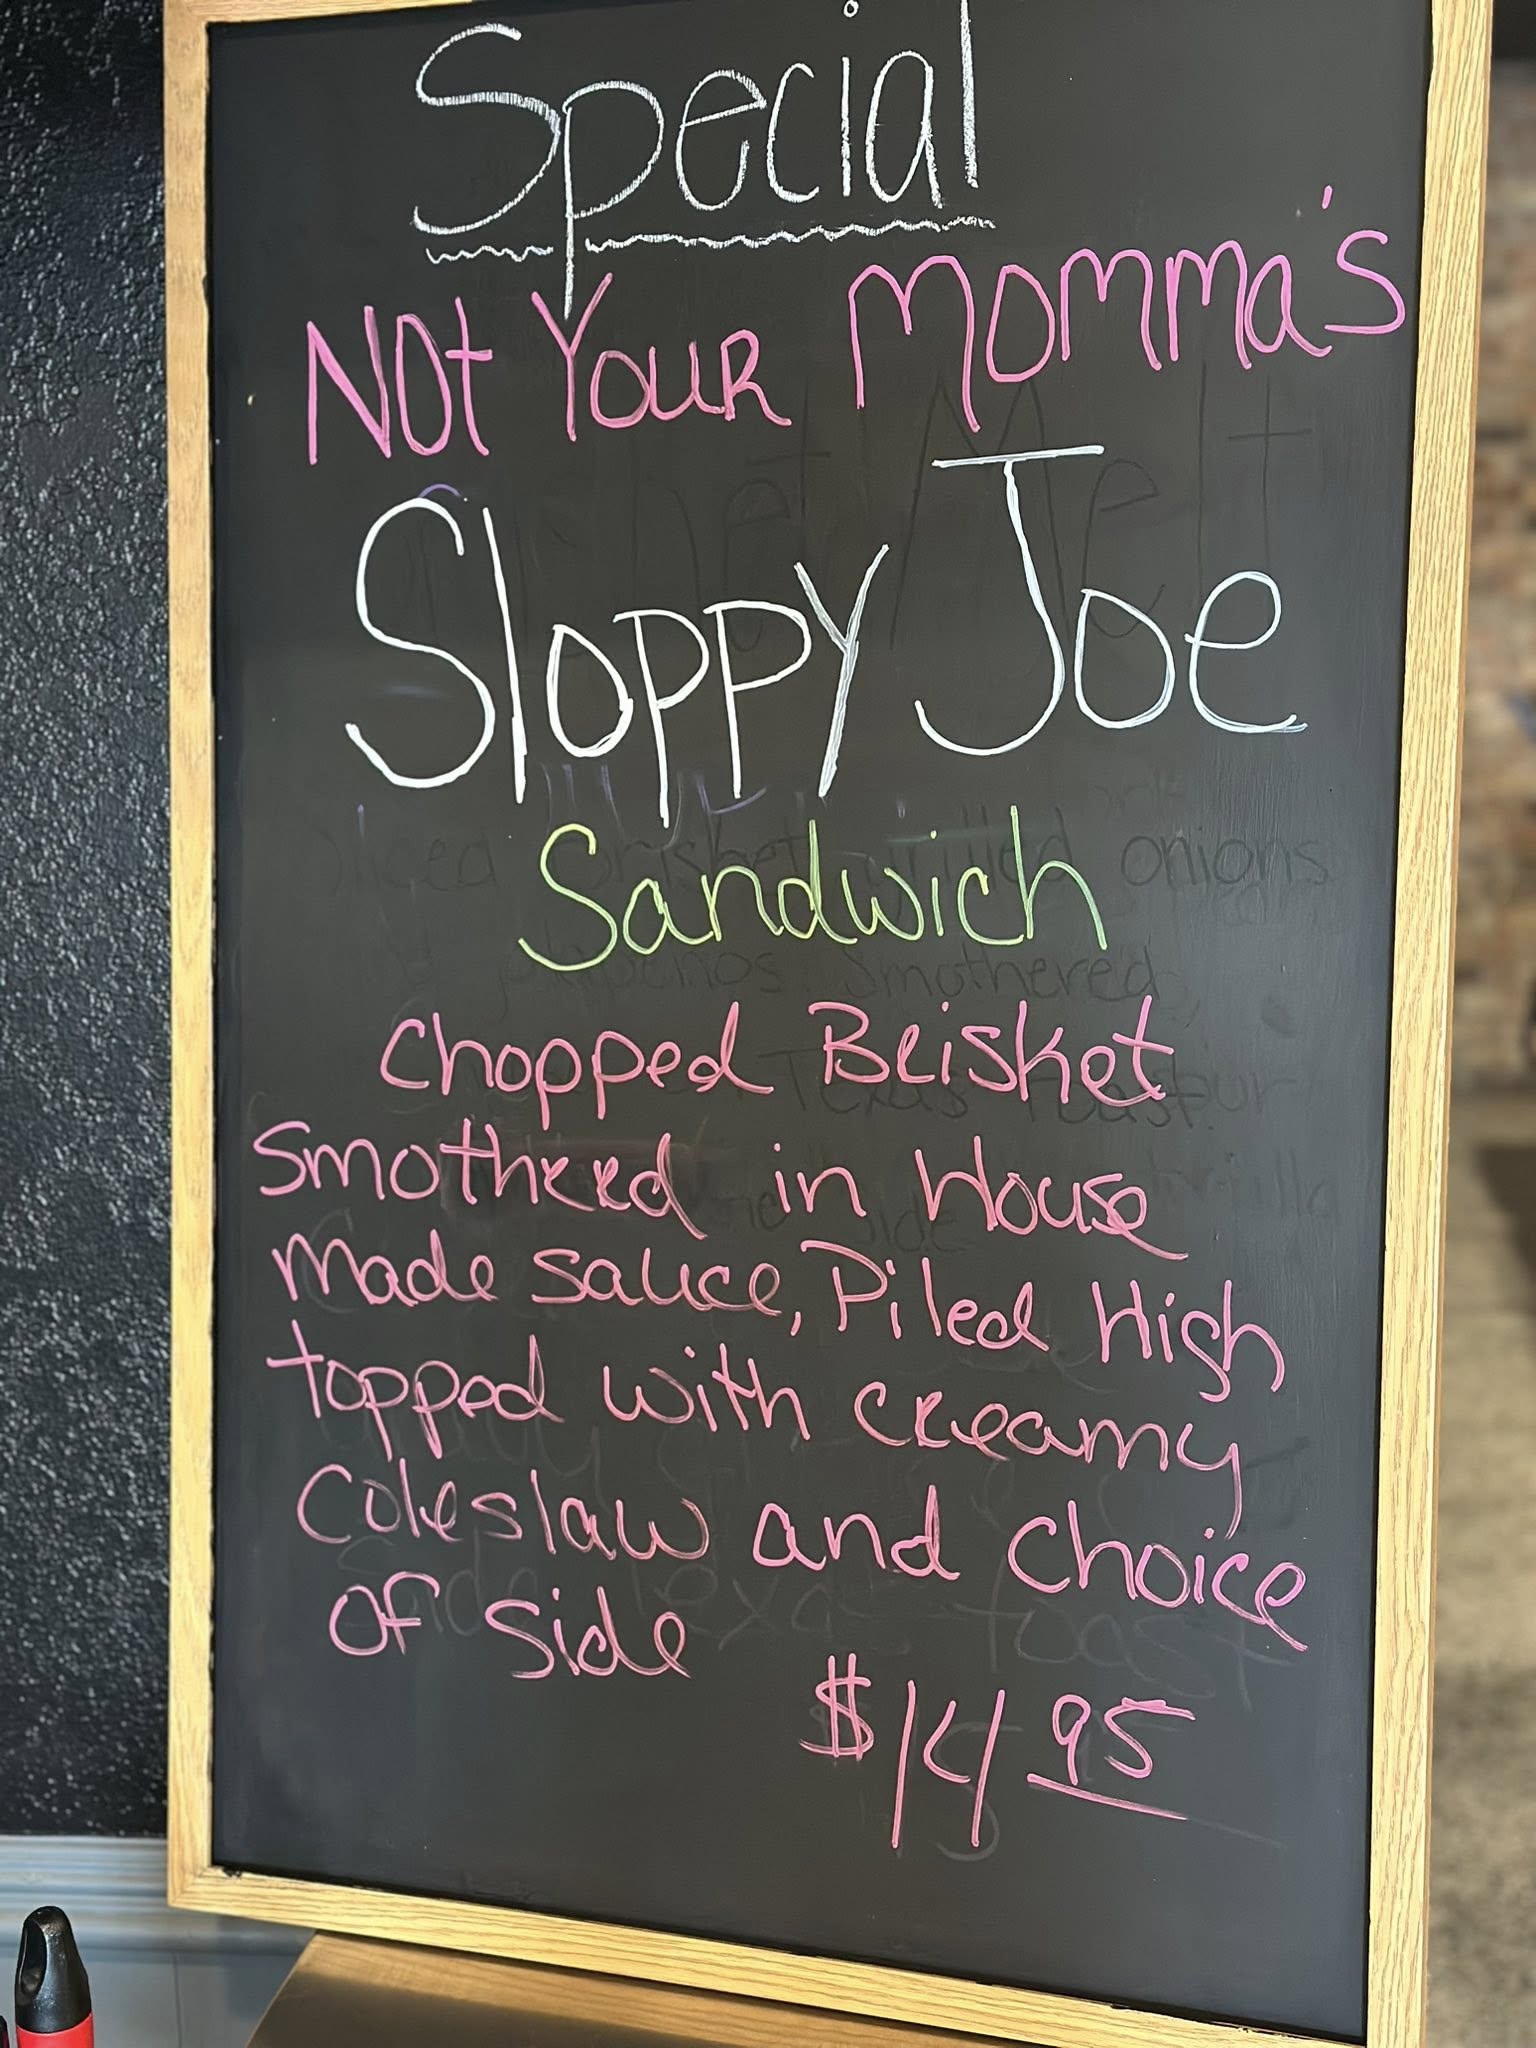 Special
Not Your Momma's
Sloppy Joe
Sandwich
Chopped Brisket
Smothered in House
Made Sauce, Piled High
topped with creamy
Coleslaw and choice
of side
$14 95